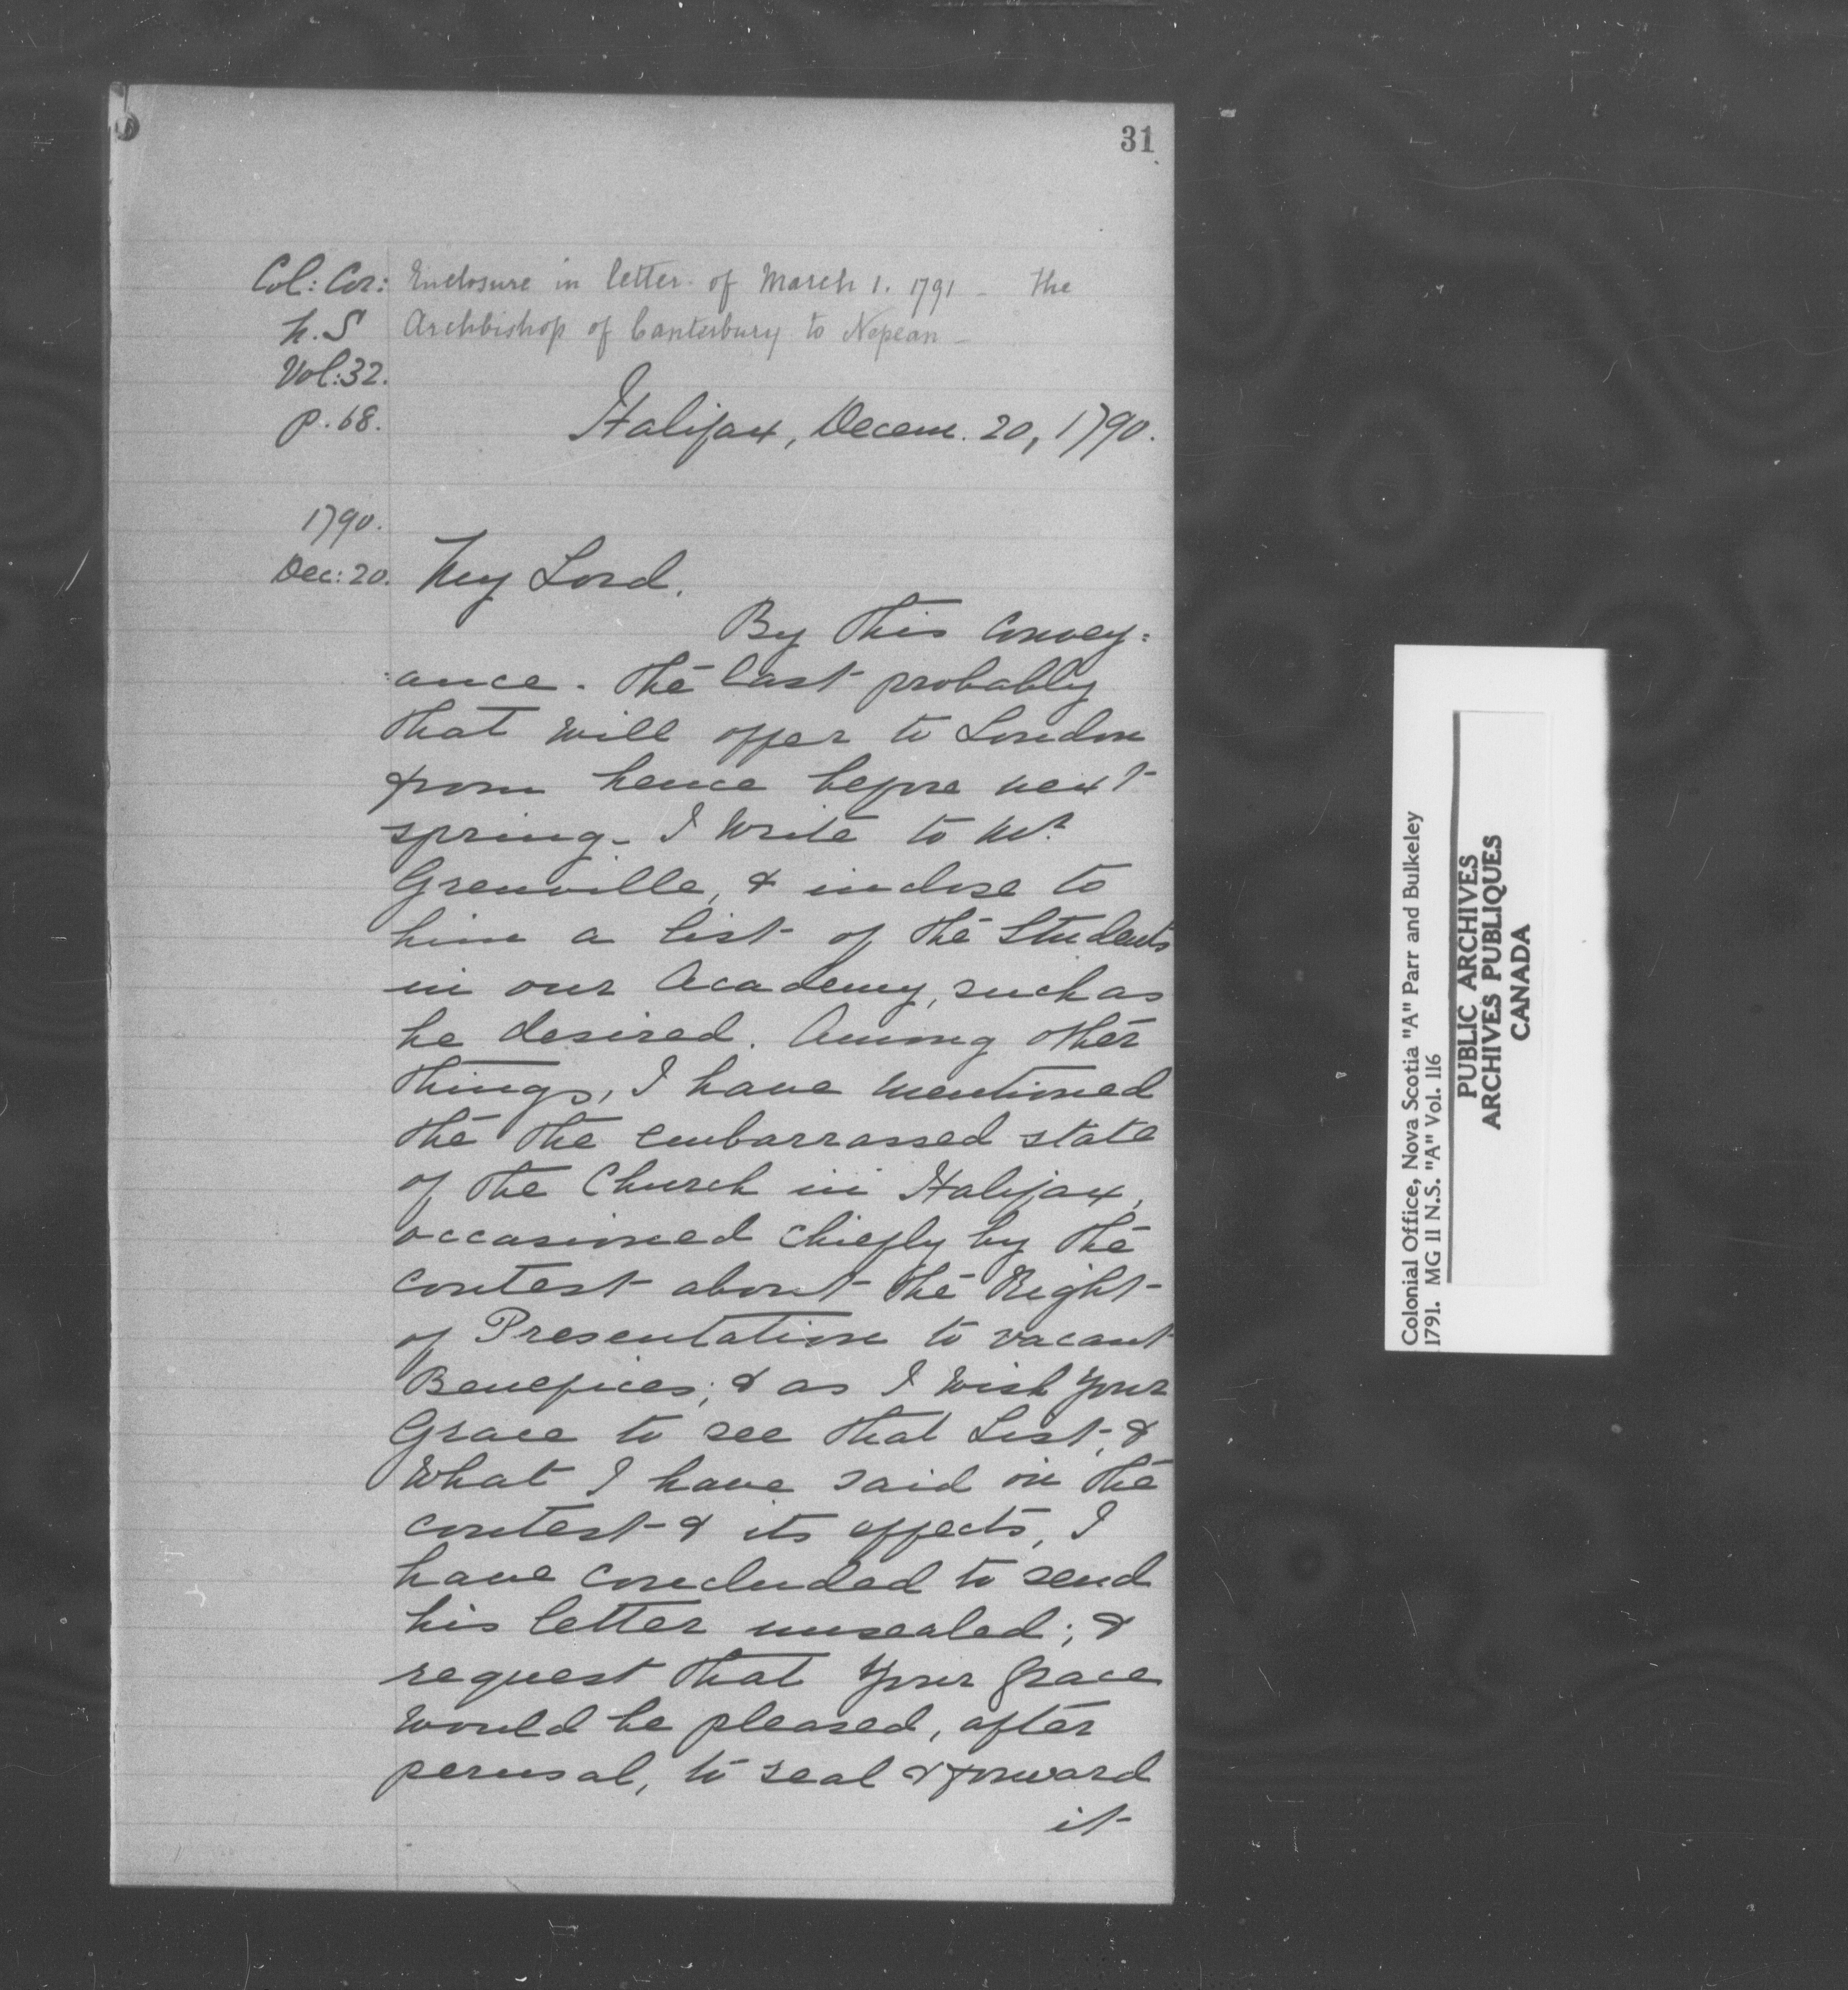 31
Col: Cor: Enclosure in letter of March 1. 1791 - The
N.S Archbishop of Canterbury to Nepean -
Vol: 32.
p. 68.
Halifax, Decem. 20, 1790.
1790.
Dec: 20. My Lord.
By this Convey=
=ance. the last probably
that will offer to London
from hence before next
spring - I write to Mr.
Grenville, & inclose to
him a list of the Students
in our Academy, such as
he desired. Among other
things, I have mentioned
the the embarrassed state
of the Church in Halifax,
occasioned chiefly by the
contest about the Right
of Presentation to vacant
Benefices; & as I wish Your
Grace to see that List, &
What I have said on the
contest & its effects, I
have concluded to send
his letter unsealed; &
request that Your Grace
would be pleased, after
perusal, to seal & forward
it
Colonial Office, Nova Scotia "A" Parr and Bulkeley
1791. MG 11 N.S. "A" Vol. 116
PUBLIC ARCHIVES
ARCHIVES PUBLIQUES
CANADA